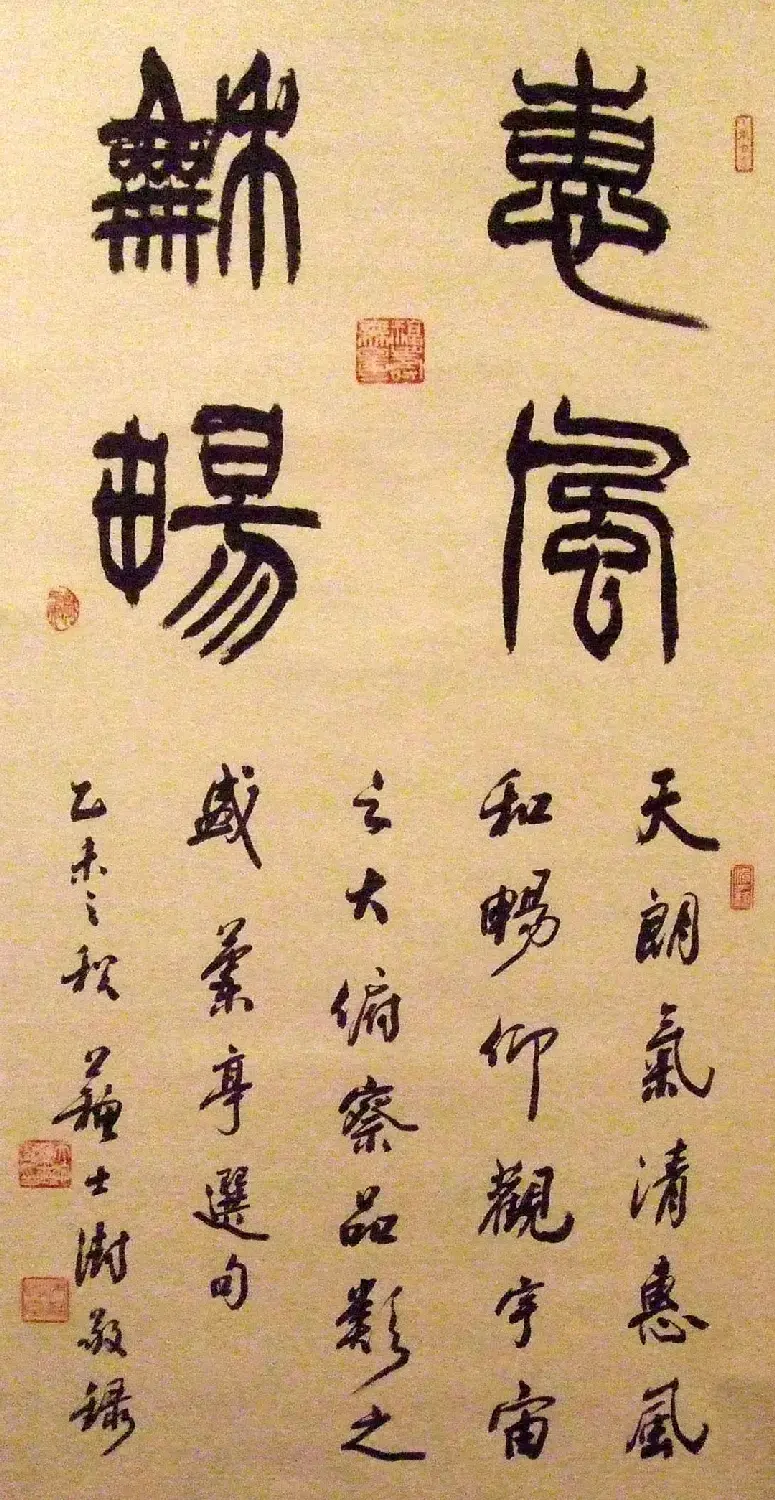 惠風
龢暢
天朗氣清惠風
和暢仰觀宇宙
之大俯察品類之
盛蘭亭選句
乙未之秋蘇士澍敬錄